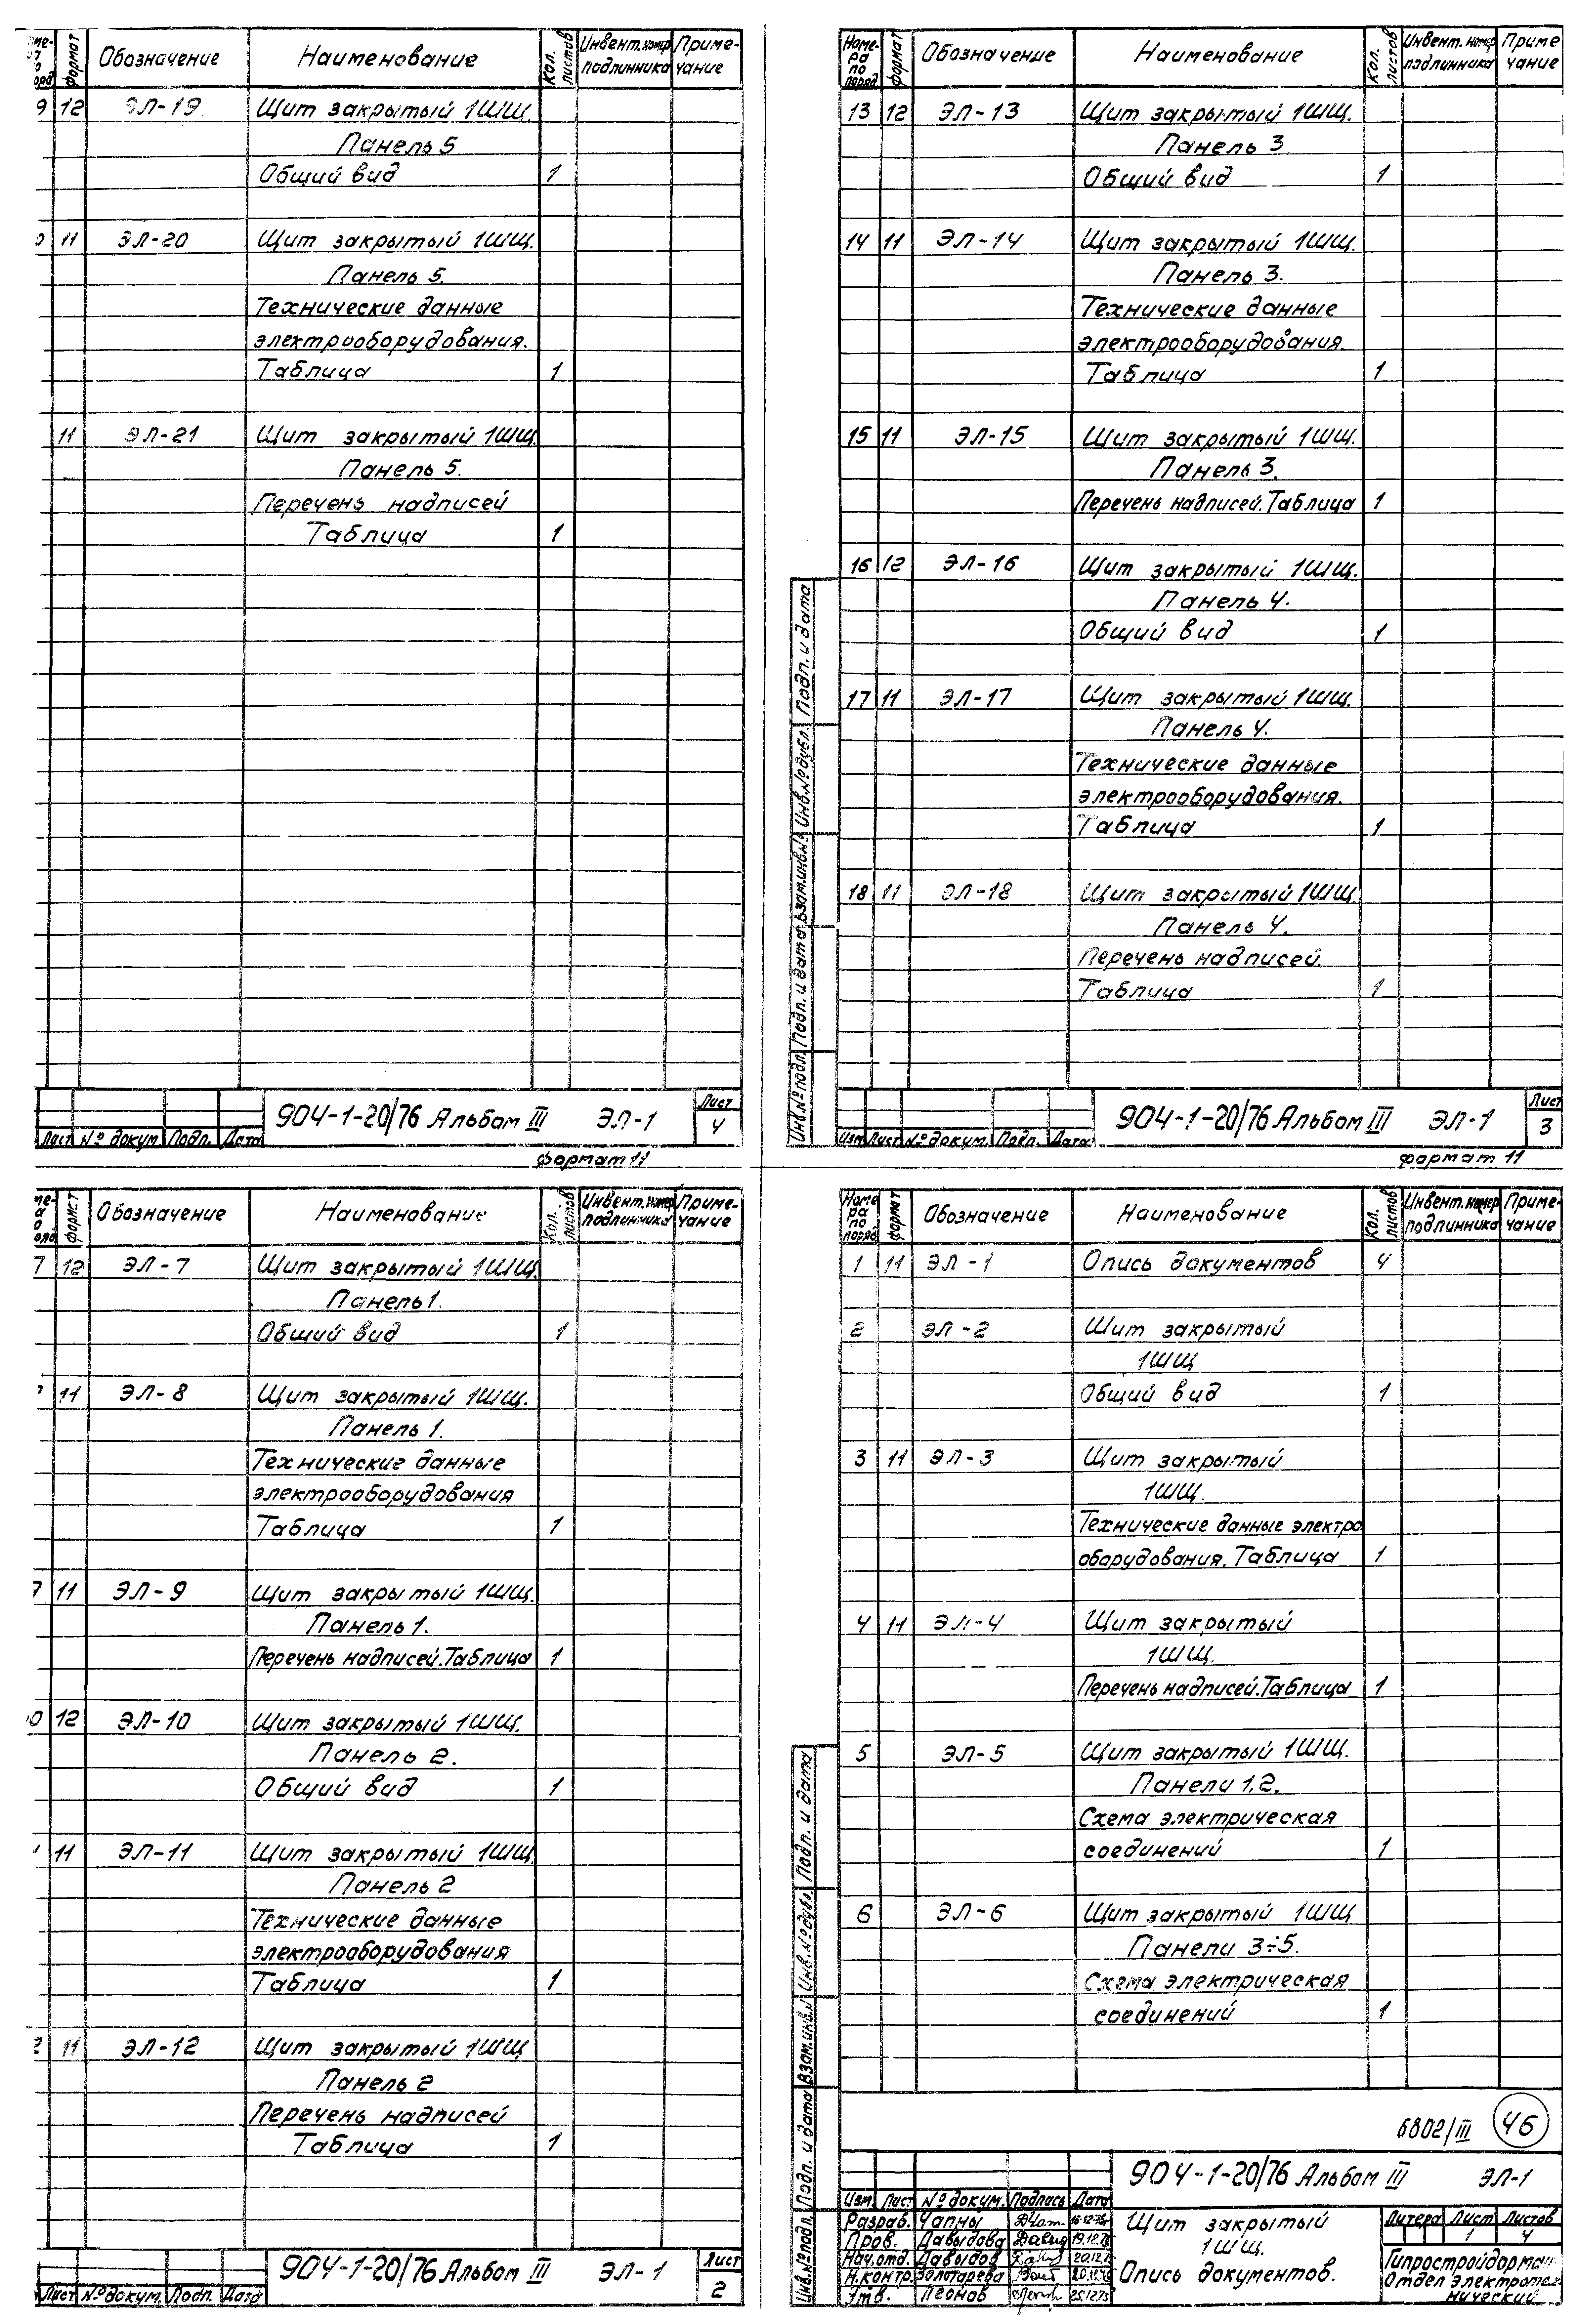 Обозначение Наименование Кол. листов Инвент. номер подлинника Примечание
формат
9 12 ЭЛ-19 Щит закрытый 1ШЩ.
Панель 5
Общий вид 1
11 ЭЛ-20 Щит закрытый 1ШЩ.
Панель 5.
Технические данные
электрооборудования.
Таблица 1
11 ЭЛ-21 Щит закрытый 1ШЩ.
Панель 5.
Перечень надписей
Таблица 1
904-1-20/76 Альбом III ЭЛ-1 Лист 4
Лист № докум. Подп. Дата
формат 11
Номера по поряд. формат Обозначение Наименование Кол. листов Инвент. номер подлинника Примечание
13 12 ЭЛ-13 Щит закрытый 1ШЩ.
Панель 3
Общий вид 1
14 11 ЭЛ-14 Щит закрытый 1ШЩ.
Панель 3.
Технические данные
электрооборудования.
Таблица 1
15 11 ЭЛ-15 Щит закрытый 1ШЩ.
Панель 3.
Перечень надписей. Таблица 1
16 12 ЭЛ-16 Щит закрытый 1ШЩ.
Панель 4.
Общий вид 1
17 11 ЭЛ-17 Щит закрытый 1ШЩ.
Панель 4.
Технические данные
электрооборудования.
Таблица 1
18 11 ЭЛ-18 Щит закрытый 1ШЩ.
Панель 4.
Перечень надписей.
Таблица 1
Инв.№ подл. Подп. и дата Взам.инв.№ Инв.№ дубл. Подп. и дата
904-1-20/76 Альбом III ЭЛ-1 Лист 3
Изм Лист № докум. Подп. Дата
формат 11
формат Обозначение Наименование Кол. листов Инвент. номер подлинника Примечание
7 12 ЭЛ-7 Щит закрытый 1ШЩ.
Панель 1.
Общий вид 1
11 ЭЛ-8 Щит закрытый 1ШЩ.
Панель 1.
Технические данные
электрооборудования
Таблица 1
11 ЭЛ-9 Щит закрытый 1ШЩ.
Панель 1.
Перечень надписей. Таблица 1
12 ЭЛ-10 Щит закрытый 1ШЩ.
Панель 2.
Общий вид 1
11 ЭЛ-11 Щит закрытый 1ШЩ.
Панель 2
Технические данные
электрооборудования
Таблица 1
11 ЭЛ-12 Щит закрытый 1ШЩ
Панель 2
Перечень надписей
Таблица 1
904-1-20/76 Альбом III ЭЛ-1 Лист 2
Лист № докум. Подп. Дата
Номера по поряд формат Обозначение Наименование Кол. листов Инвент. номер подлинника Примечание
1 11 ЭЛ-1 Опись документов 4
2 ЭЛ-2 Щит закрытый
1ШЩ
Общий вид 1
3 11 ЭЛ-3 Щит закрытый
1ШЩ.
Технические данные электро
оборудования. Таблица 1
4 11 ЭЛ-4 Щит закрытый
1ШЩ.
Перечень надписей. Таблица 1
5 ЭЛ-5 Щит закрытый 1ШЩ.
Панели 1,2.
Схема электрическая
соединений 1
6 ЭЛ-6 Щит закрытый 1ШЩ
Панели 3÷5.
Схема электрическая
соединений 1
Инв.№ подл. Подп. и дата Взам.инв.№ Инв.№ дубл. Подп. и дата
6802/III 46
904-1-20/76 Альбом III ЭЛ-1
Изм. Лист № докум. Подпись Дата
Разраб. Чапны
Пров. Давыдова
Нач.отд. Давыдов
Н.контр. Золотарева
Утв. Леонов
Щит закрытый
1ШЩ.
Опись документов.
Литера Лист Листов
1 4
Гипростройдормаш
Отдел электротех
нический